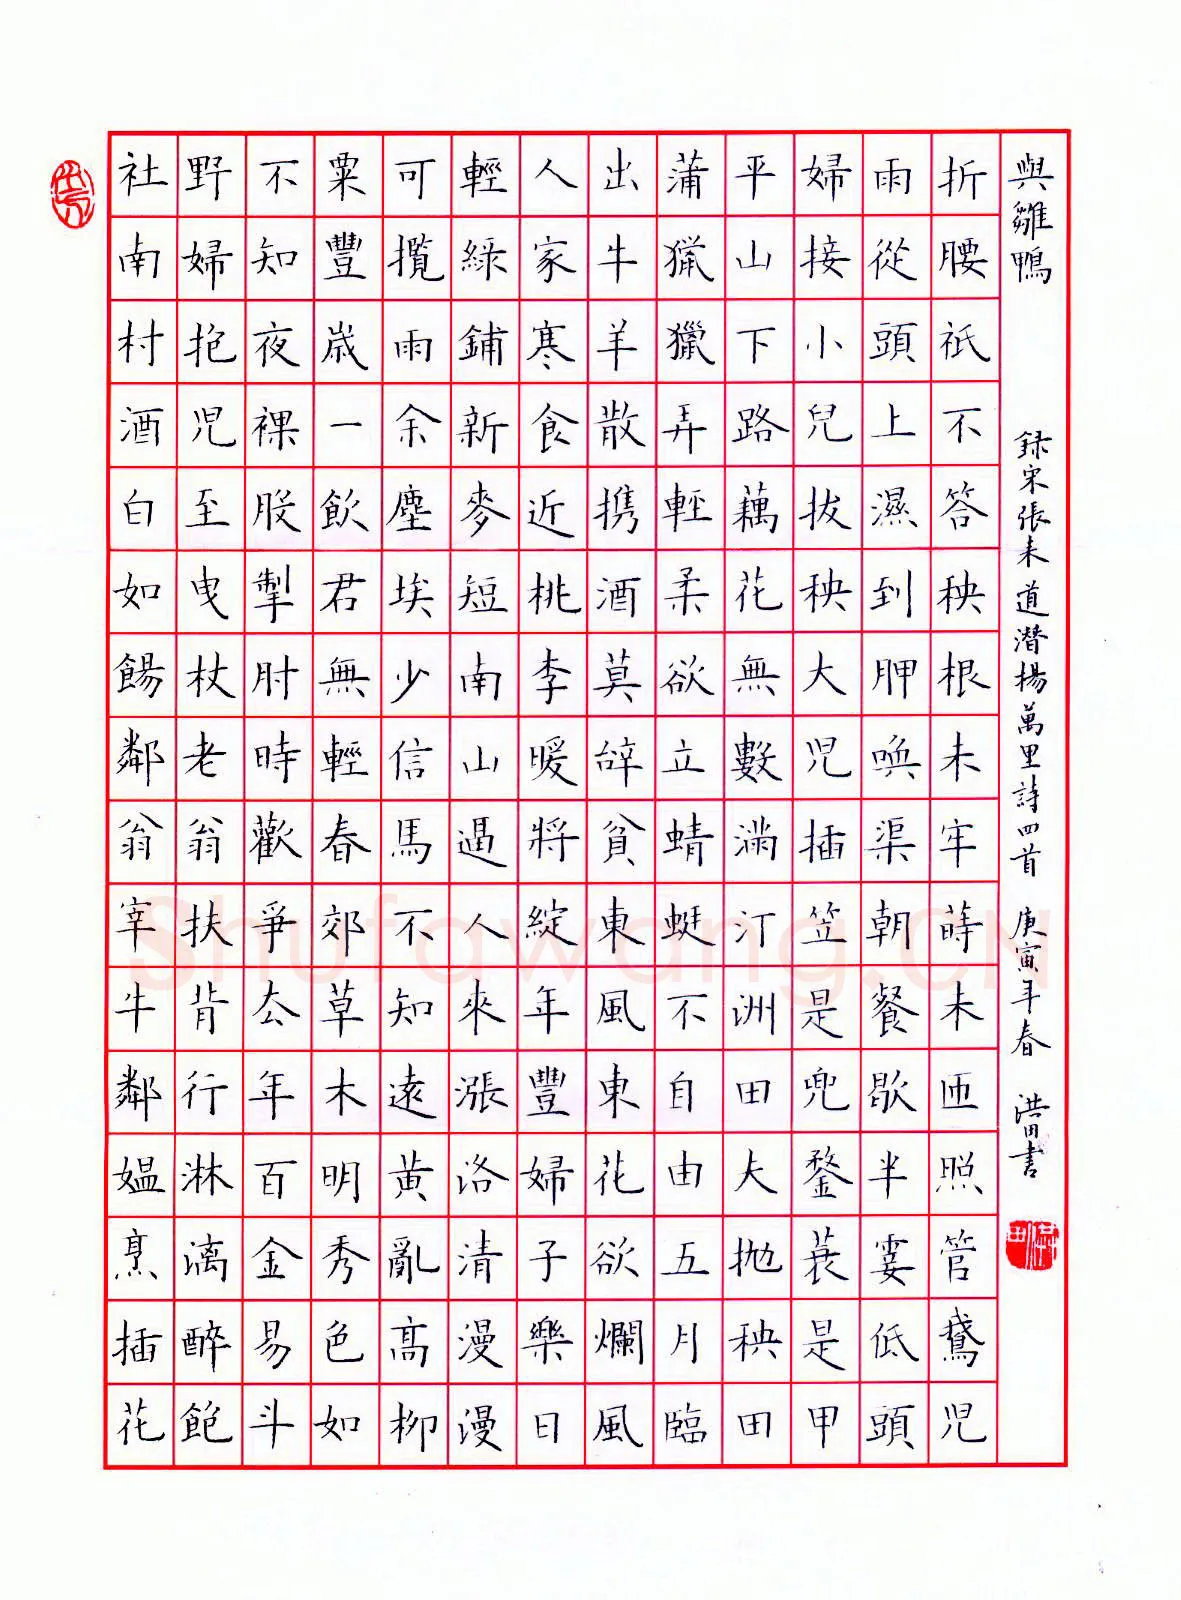 社南村酒白如餳鄰翁宰牛鄰媼烹插花
野婦抱児至曳杖老翁扶背行淋漓醉飽
不知夜裸股掣肘時歡爭厺年百金易斗
粟豐歲一飲君無輕春郊草木明秀色如
可攬雨余塵埃少信馬不知遠黄亂高柳
輕綠鋪新麥短南山逼人來漲洛清漫漫
人家寒食近桃李暖將綻年豐婦子樂日
出牛羊散携酒莫辭貧東風東花欲爛風
蒲獵獵弄輕柔欲立蜻蜓不自由五月臨
平山下路藕花無數滿汀洲田夫抛秧田
婦接小兒拔秧大児插笠是兜鍪蓑是甲
雨從頭上濕到胛喚渠朝餐歇半霎低頭
折腰祇不答秧根未牢蒔未匝照管鵞児
與雛鴨 録宋張耒道潛楊萬里詩四首 庚寅年春 洪田書
Shufawang.CN